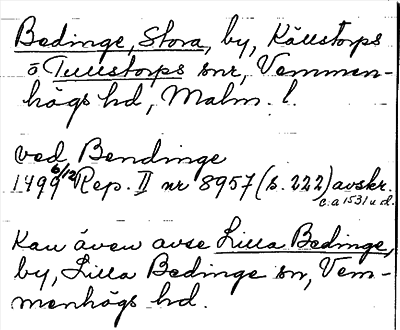 Bedinge, Stora, by, Källstorps
o Tullstorps snr, Vemmen-
högs hd, Malm. l.
ved Bendinge
1499 6/12 Rep. II nr 8957 (s. 222) avskr.
c.a 1531 u.d.
Kan även avse Lilla Bedinge,
by, Lilla Bedinge sn, Vem-
menhögs hd.